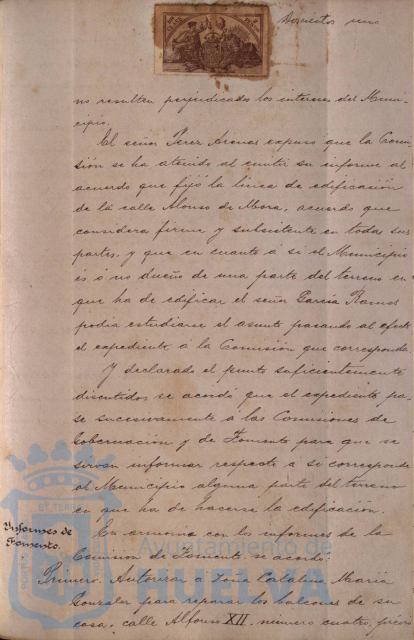 Doscientos uno
no resulten perjudicados los intereses del Muni-
cipio.
El señor Pérez Arenas expuso que la Comi-
sión se ha atenido al emitir su informe al
acuerdo que fijó la línea de edificación
de la calle Alonso de Mora, acuerdo que
considera firme y subsistente en todas sus
partes, y que en cuanto á si el Municipio
es ó no dueño de una parte del terreno en
que ha de edificar el señor García Ramos
podía estudiarse el asunto pasando al efecto
el expediente á la Comisión que corresponda.
Y declarado el punto suficientemente
discutido se acordó que el expediente pa-
se sucesivamente á las Comisiones de
Gobernación y de Fomento para que se
sirvan informar respecto a si corresponde
al Municipio alguna parte del terreno
en que ha de hacerse la edificación.
Informes de
Fomento.
En armonía con los informes de la
Comisión de Fomento se acordó:
Primero. Autorizar a Doña Catalina María
González para reparar los balcones de su
casa, calle Alfonso XII, número cuatro, previo
Ayuntamiento de
HUELVA